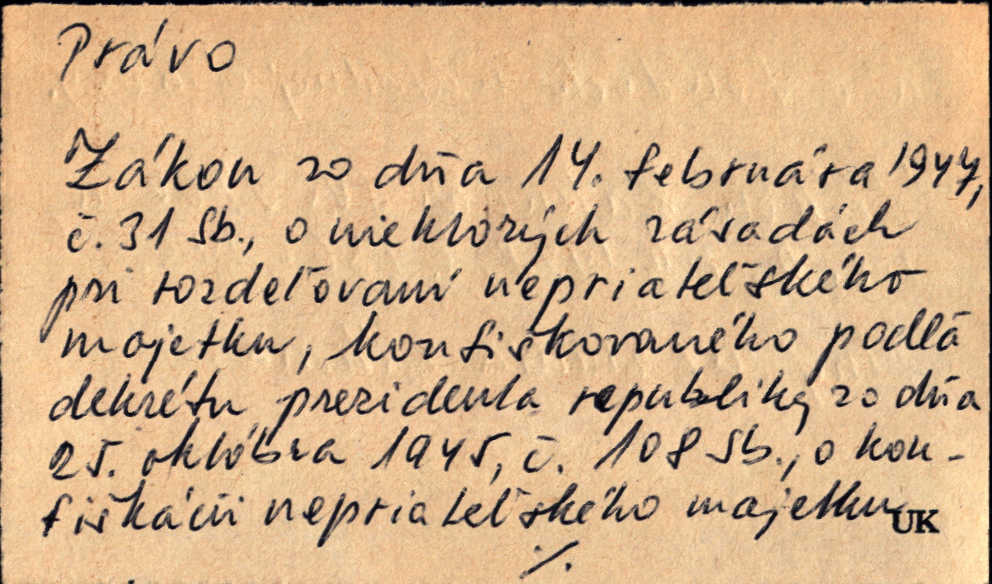 Právo
Zákon zo dňa 14. februára 1947,
č. 31 Sb., o niektorých zásadách
pri rozdeľovaní nepriateľského
majetku, konfiškovaného podľa
dekrétu prezidenta republiky zo dňa
25. októbra 1945, č. 108 Sb., o kon-
fiškácii nepriateľského majetku
UK
./.